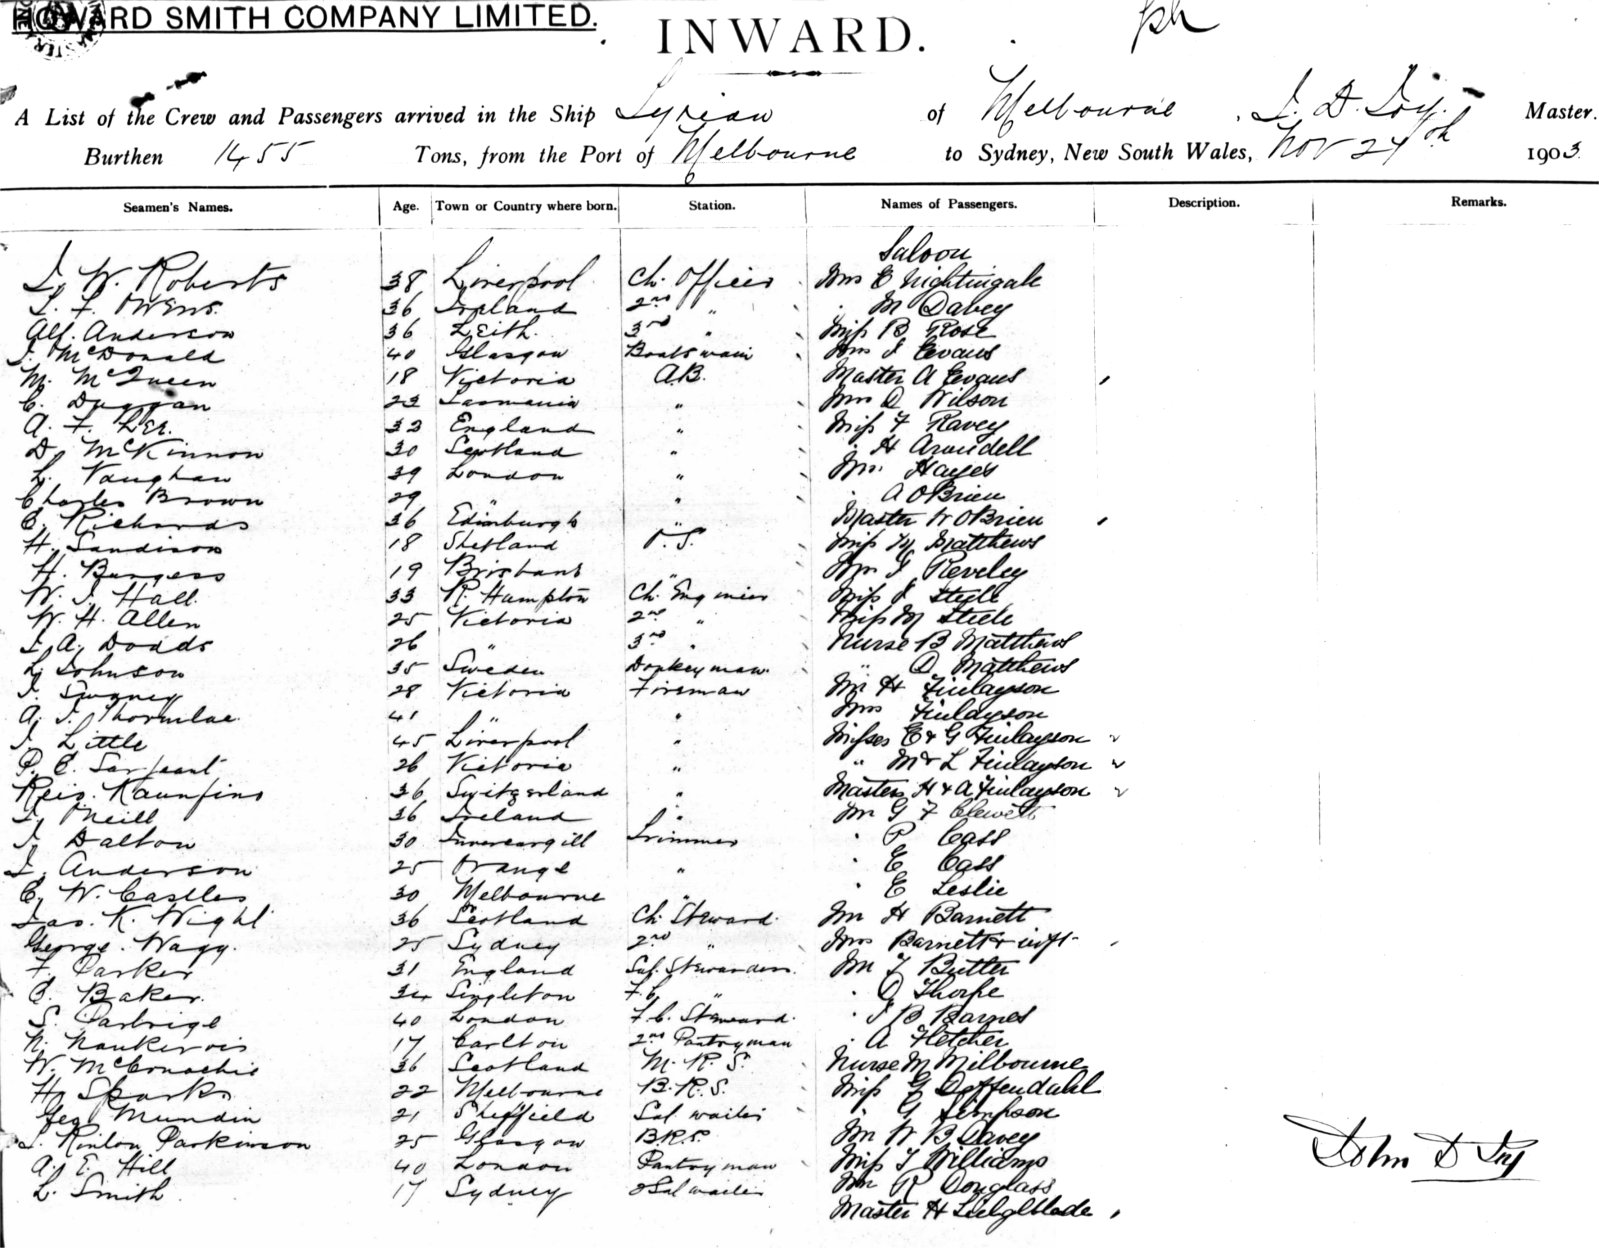 HOWARD SMITH COMPANY LIMITED.
INWARD.
A List of the Crew and Passengers arrived in the Ship Syrian of Melbourne, J. D. Fry. Master.
Burthen 1455 Tons, from the Port of Melbourne to Sydney, New South Wales, Nov 24th 1903
Seamen's Names. Age. Town or Country where born. Station. Names of Passengers. Description. Remarks.
Saloon
J. W. Roberts 38 Liverpool Ch. Officer Mrs E Nightingale
L. F. Owens 36 Ireland 2nd " " M Davey
Alf. Anderson 36 Leith 3rd " Miss B Rose
J. McDonald 40 Glasgow Boatswain Mrs J Evans
M. McQueen 18 Victoria A.B. Master A Evans
C. Duggan 23 Tasmania " Mrs D Wilson
A. F. Lee 33 England " Miss F Ravey
D. McKinnon 30 Scotland " " H Arundell
L. Vaughan 39 London " Mrs Hayes
Charles Brown 29 " " " A O'Brien
C. Richards 36 Edinburgh " Master W O'Brien
H. Sandison 18 Shetland O.S. Miss M Matthews
H. Burgess 19 Brisbane " Mr J Reveley
W. J. Hall 33 R. Hampton Ch. Engineer Miss J Steele
W. H. Allen 25 Victoria 2nd " Miss M Steele
J. A. Dodds 26 " 3rd " Nurse B Matthews
L. Johnson 35 Sweden Donkeyman " D Matthews
J. Sweney 28 Victoria Fireman Mr H Finlayson
A. J. 41 " " Mrs Finlayson
J. Little 45 Liverpool " Misses E & G Finlayson
P. C. Sarjeant 26 Victoria " " M & L Finlayson
36 Switzerland " Masters H & A Finlayson
J. Neill 36 Ireland " Mr G F Clewett
J. Dalton 30 Invercargill Trimmer " P Cass
J. Anderson 25 Orange " " E Cass
C. W. Castles 30 Melbourne " " E Leslie
Jas. K. Wight 36 Scotland Ch Steward Mr H Barnett
George Wagy. 25 Sydney 2nd " Mrs Barnett & inft
F. Parker 31 England Sal. Stewardess Mr J Butler
C. Baker. 34 Singleton F.C. " " D Thorpe
S. Partrige 40 London F.C. Steward. " J B Barnes
N. Nankervis 17 Carlton 2nd Pantryman " A Fletcher
W. McConachie 36 Scotland M. R. S. Nurse M Milbourne
H. Sparks 22 Melbourne B.R.S. Miss G Deffendahl
Geo Mundin 21 Sheffield Sal. waiter " G Simpson
J. Parkinson 25 Glasgow B.R.S. Mr W B Davey
A. E. Hill 40 London Pantryman Miss J Williams
L. Smith 17 Sydney Sal waiter Mr R Douglass
Master H
John D Fry